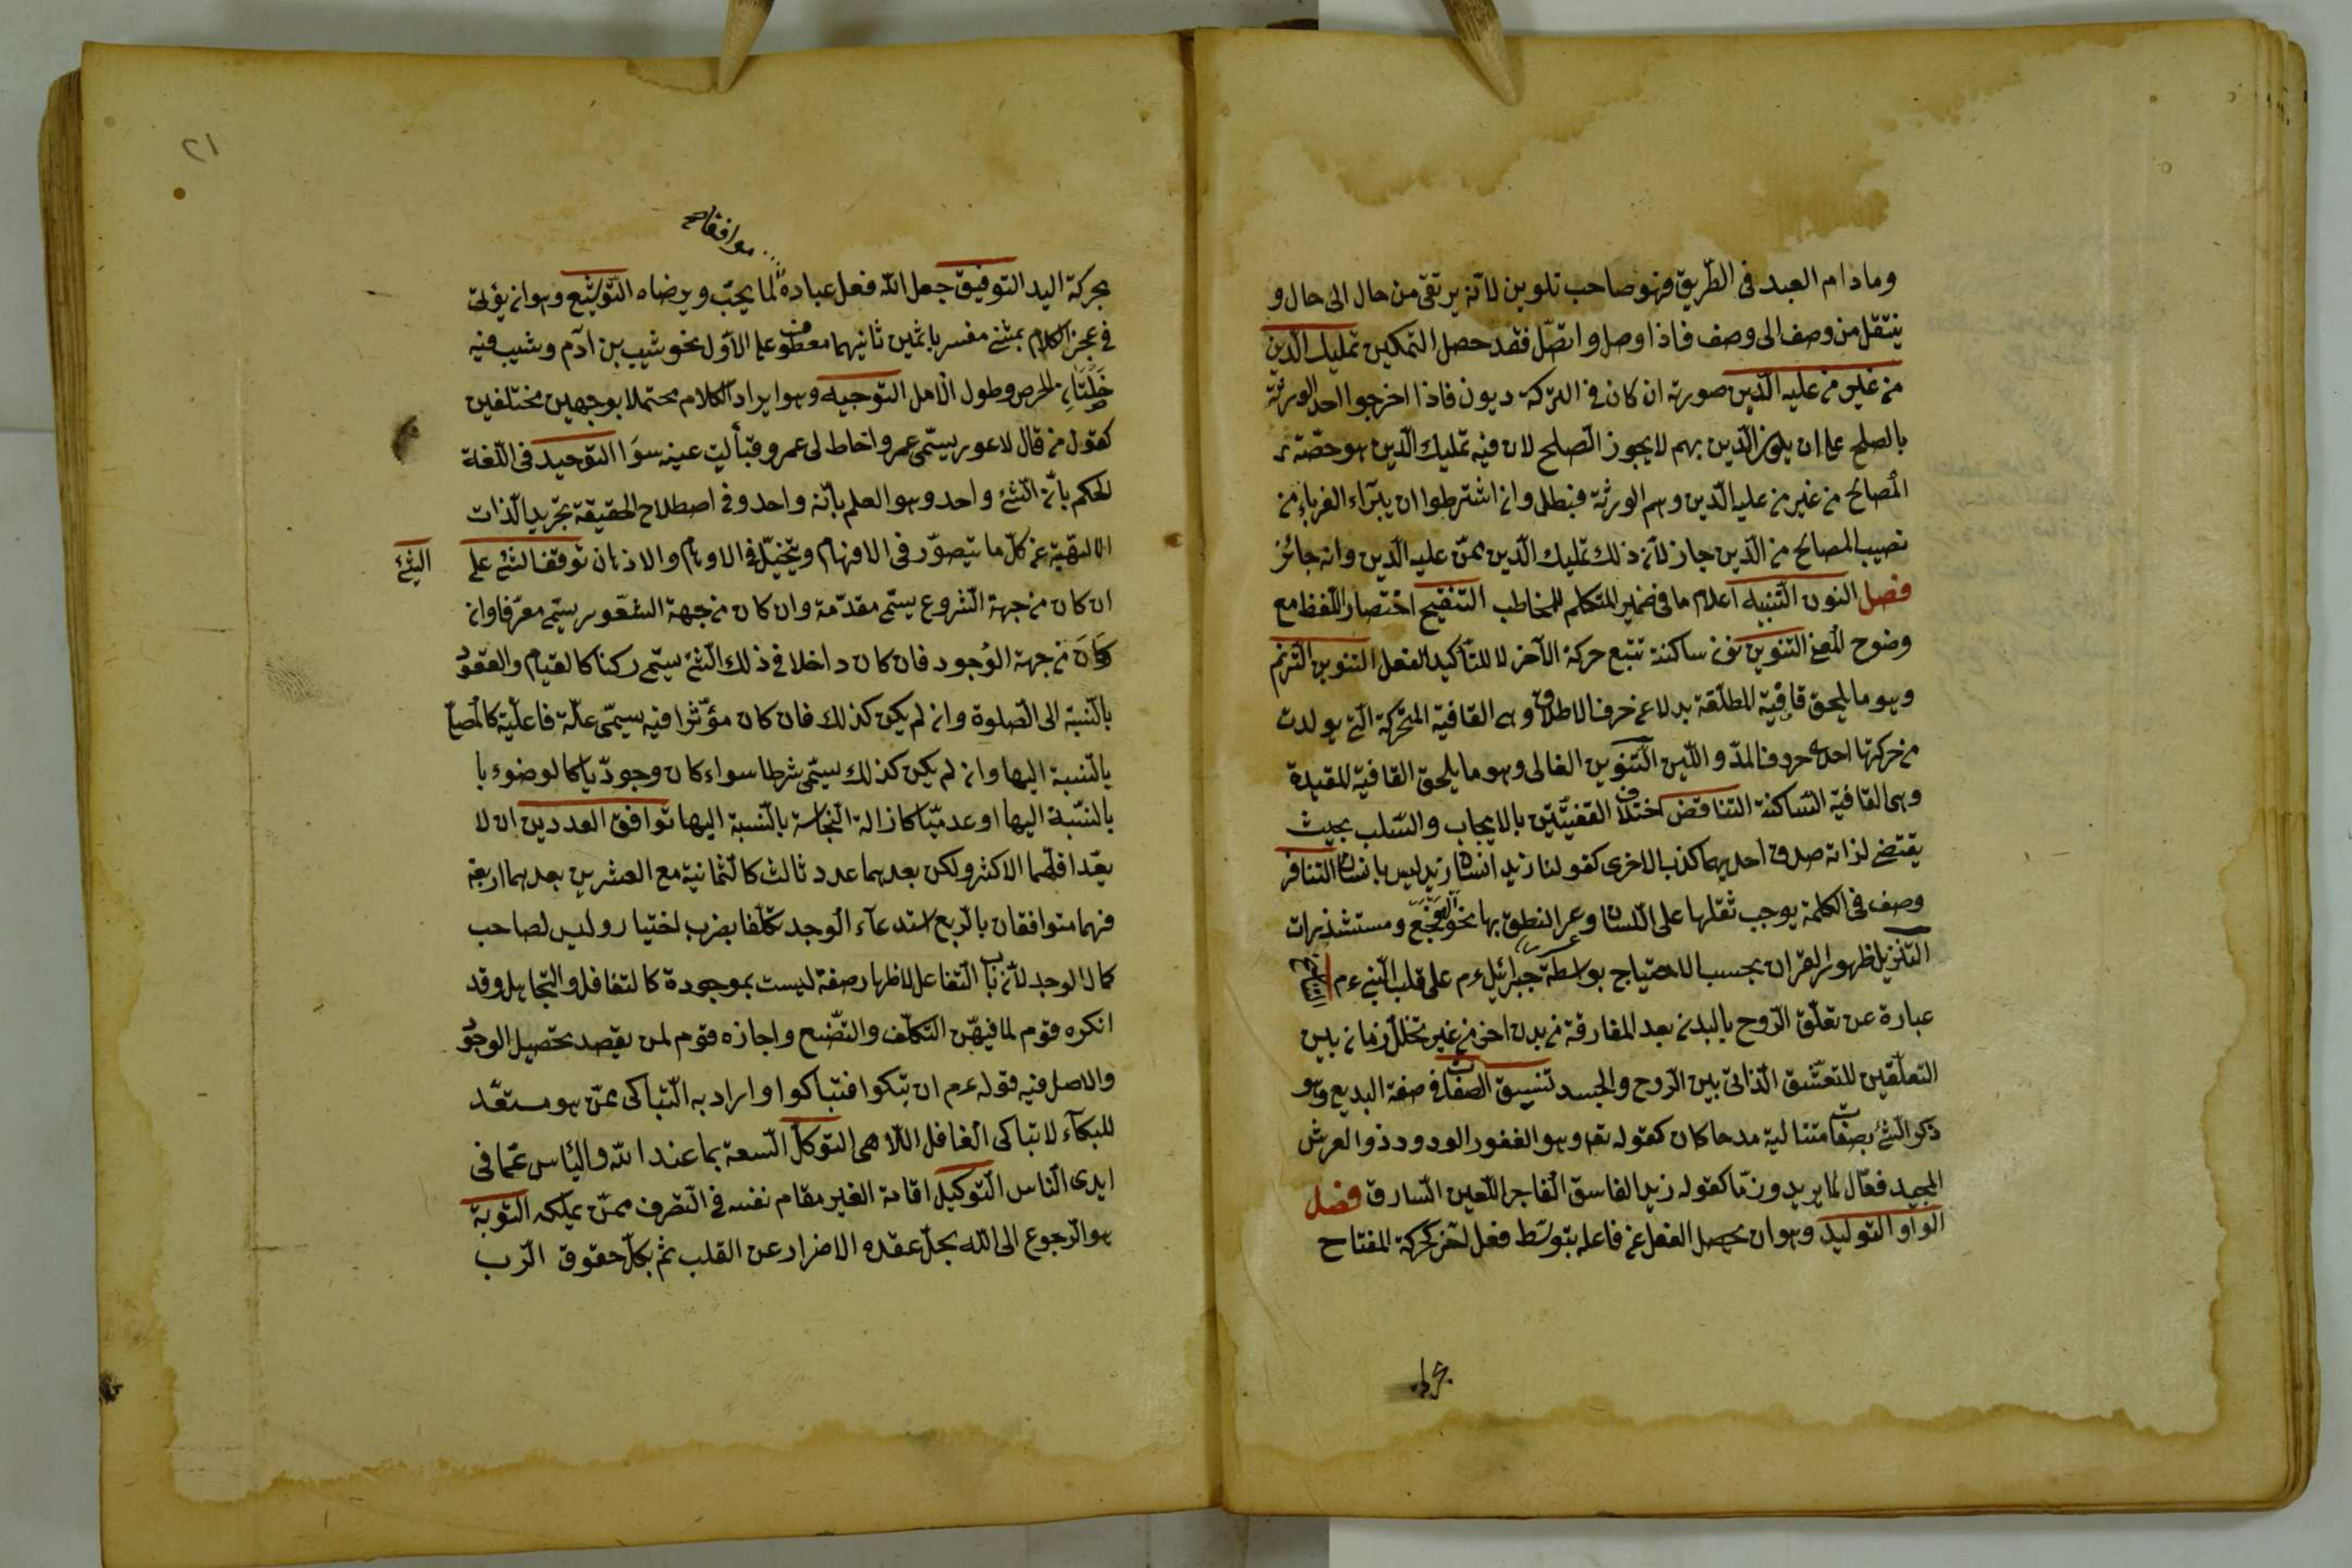 وما دام العبد فى الطّريق فهو صاحب تلوين لانّه يرتقى من حال الى حال و
ينتقل من وصف الى وصف فاذا وصل واتصّل فقد حصل التمكين تمليك الدّين
من غير من عليه الدّين صورته ان كان فى التركة ديون فاذا اخرجوا احد الورثة
بالصلح على ان يكون الدّين لهم لا يجوز الصّلح لان فيه تمليك الدّين هو حصّة
المُصالح من غير من عليه الدّين وهم الورثة فبطل وان اشترطوا ان يبرّاء الغرباء من
نصيب المصالح من الدّين جاز لانّ ذلك تمليك الدّين ممّن عليه الدّين وانه جائز
فصل النون التّنبيه اعلام ما فى ضمير المتكلم للمخاطب التنقيح اختصار اللّفظ مع
وضوح المعنى التنوين نون ساكنة تتبع حركة الآخر لا للتّأكيد الفعل التنوين التّرنم
وهو ما يلحق قافية المطلّقة بدلا عن حرف الاطلاق وهى القافية المتحركة الّتى يولدت
من حركتها احدى حروف المدّ واللّين التّنوين الغالى وهو ما يلحق القافية المقيدة
وهى القافية السّاكنة التناقض اختلاف القضيّتين بالايجاب والسّلب بحيث
يقتضى لذاته صدق احديهما كذب الاخرى كقولنا زيد انسان زيد ليس بانسان التنافر
وصف فى الكلمة يوجب ثقلها على اللّسان وعسر النطق بها نحو الهعخع ومستشذرات
التّنزيل ظهور القران بحسب الاحتياج بواسطة جبرائيل ءم على قلب النّبى ءم
عبارة عن تعلّق الرّوح بالبدن بعد المفارقة من بدن اخر من غير تخلّل زمان بين
التعلّقين للتعشّق الذّاتى بين الرّوح والجسد تنسيق الصفات فى صفة البديع وهو
ذكر الشّئ بصفات متتالية مدحا كان كقوله تعه وهو الغفور الودود ذو العرش
المجيد فعّال لما يريد وذمّا كقوله زيد الفاسق الفاجر اللّعين السّارق فصل
الواو التوليد وهو ان يحصل الفعل عن فاعله بتوسّط فعل آخر كحركة المفتاح
٢١
موافقا صح
بحركة اليد التوفيق جعل الله فعل عباده لما يحبّ ويرضاه التّوشيع وهو ان يؤتى
فى عجز الكلام بمثنّى مفسر باثمين ثانيهما معطوف على الاوّل نحو شيب بن آدم وشيب فيه
خَلْتَانِ الحرص وطول الامل التوجيه وهو ايراد الكلام محتملا بوجهين مختلفين
كقول من قال لاعور يسمّى عمروا خاط لى عمرو قبأ ليت عينه سوَا التوحيد فى اللّغة
الحكم بانّ الشّئ واحد وهو العلم بانّه واحد وفى اصطلاح الحقيقة تجريد الذّات
الالهيّة عن كلّ ما يتصوّر فى الافهام ويتخيّل فى الاوهام والاذهان توقف الشّئ على الشّئ
ان كان من جهة الشّروع يسمّى مقدّمة وان كان من جهة الشعّور يسمّى معرّفا وان
كَانَ من جهة الوُجود فان كان داخلا فى ذلك الشّئ يسمّى ركنا كالقيام والقعود
بالنّسبة الى الصّلوة وان لم يكن كذلك فان كان مؤثّرا فيه يسمّى علّة فاعليّة كالمُصلّى
بالنّسبة اليها وان لم يكن كذلك يسمّى شرطا سواء كان وجوديّا كالوضوء با
بالنسّبة اليها او عدميّا كازالة النّجاسة بالنّسبة اليها توافق العددين ان لا
يعّد اقلّهما الاكثر ولكن يعدهما عدد ثالث كالثّمانية مع العشرين يعدهما اربعة
فهما متوافقان بالرّبع استدعآء الوجد تكلّفا بضرب اختيار وليس لصاحب
كمال الوجد لانّ باب التّفاعل لاظهار صفة ليست بموجودة كالتغافل والتّجاهل وقد
انكره قوم لما فيه من التكلّف والتصّنع واجازه قوم لمن يقصد تحصيل الوجود
والاصل فيه قوله ءم ان تبكوا فتباكوا واراد به التّباكى ممّن هو مستعّد
للبكآء لا تباكى الغافل اللّاهى التوكّل السّعة بما عند الله واليأس عمّا فى
ايدى النّاس التّوكيل اقامة الغير مقام نفسه فى التّصرف ممّن يملكه التّوبة
هو الرّجوع الى الله بحلّ عقدة الاضرار عن القلب ثم بكلّ حقوق الرّب